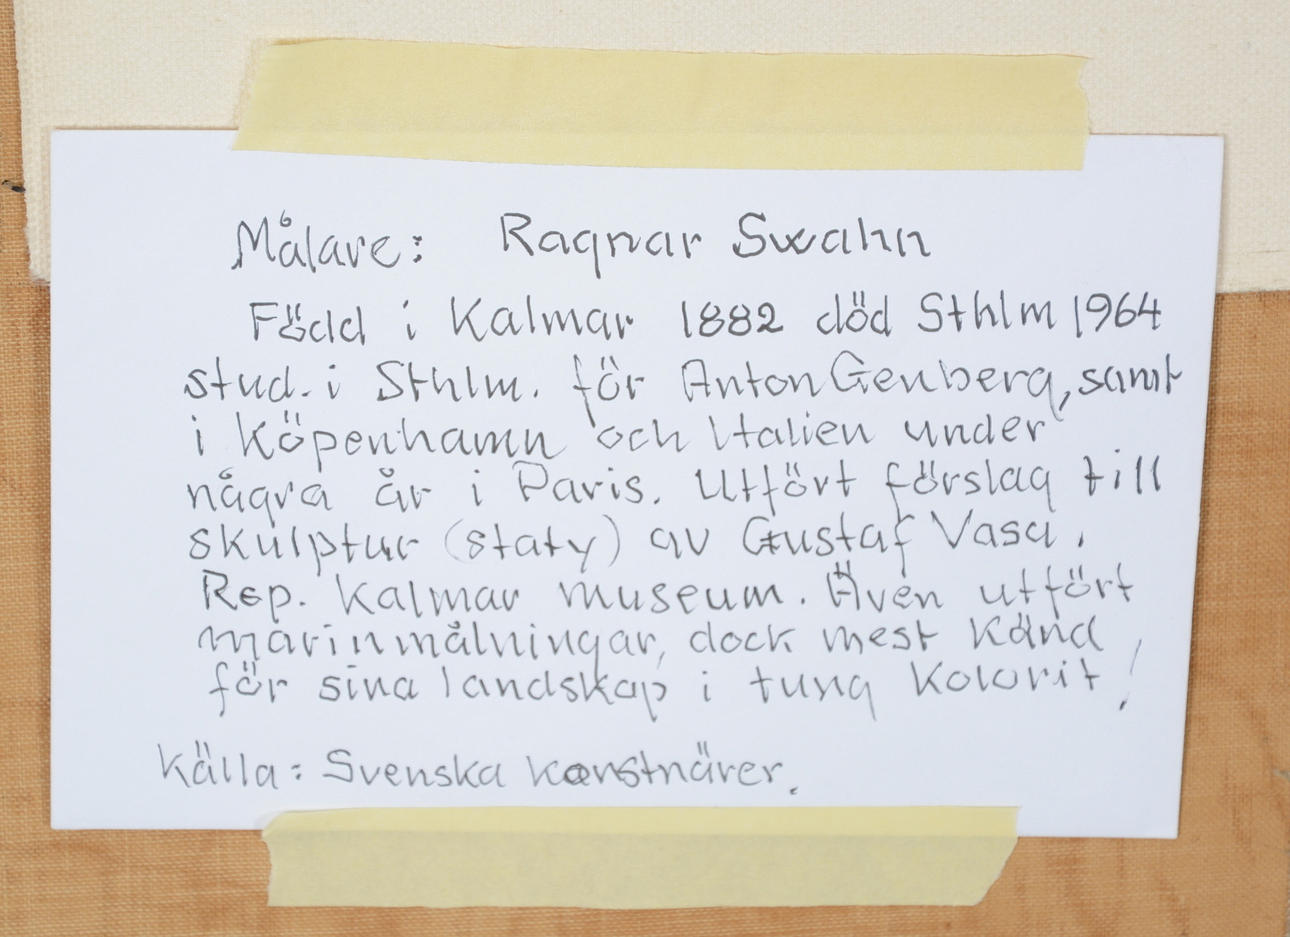 Målare: Ragnar Swahn
Född i Kalmar 1882 död Sthlm 1964
stud. i Sthlm. för Anton Genberg, samt
i Köpenhamn och Italien under
några år i Paris. Utfört förslag till
skulptur (staty) av Gustaf Vasa.
Rep. Kalmar museum. Även utfört
marinmålningar, dock mest känd
för sina landskap i tung kolorit!
Källa: Svenska konstnärer.